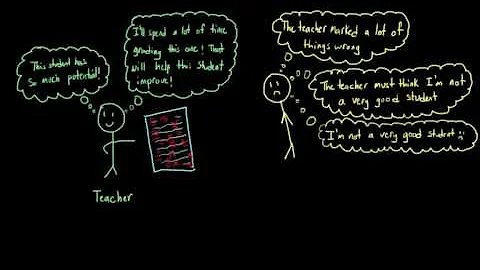 This student has
so much potential!
I'll spend a lot of time
grading this one! That
will help this student
improve!
Teacher
The teacher marked a lot of
things wrong
The teacher must think I'm not
a very good student
I'm not a very good student :(